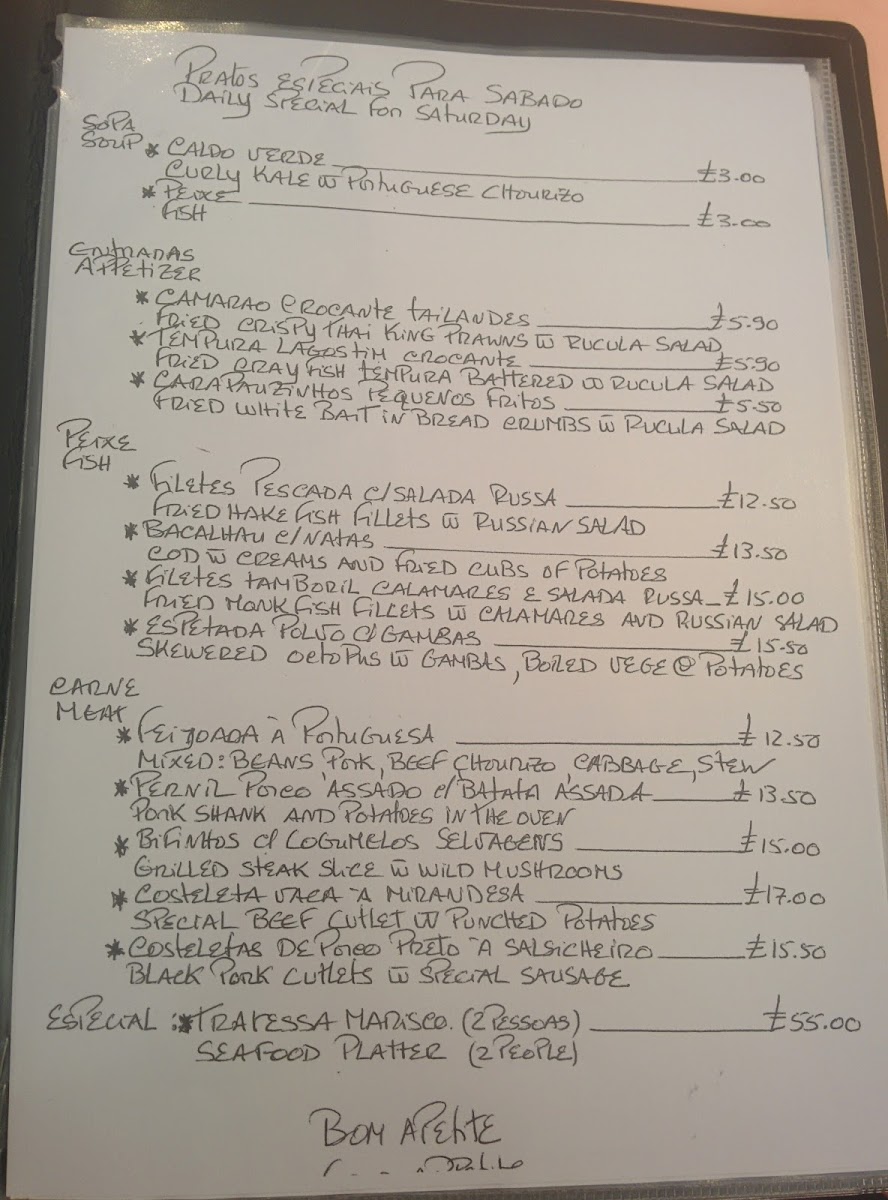 PRATOS ESPECIAIS PARA SABADO
DAILY SPECIAL FOR SATURDAY
SOPA
SOUP * CALDO VERDE £3.00
CURLY KALE W PORTUGUESE CHOURIZO
* PEIXE
FISH £3.00
ENTRADAS
APPETIZER
* CAMARAO CROCANTE TAILANDES £5.90
FRIED CRISPY THAI KING PRAWNS W RUCULA SALAD
* TEMPURA LAGOSTIM CROCANTE £5.90
FRIED CRAY FISH TEMPURA BATTERED W RUCULA SALAD
* CARAPAUZINHOS PEQUENOS FRITOS £5.50
FRIED WHITE BAIT IN BREAD CRUMBS W RUCULA SALAD
PEIXE
FISH
* FILETES PESCADA C/SALADA RUSSA £12.50
FRIED HAKE FISH FILLETS W RUSSIAN SALAD
* BACALHAU C/NATAS £13.50
COD W CREAMS AND FRIED CUBS OF POTATOES
* FILETES TAMBORIL CALAMARES E SALADA RUSSA £15.00
FRIED MONK FISH FILLETS W CALAMARES AND RUSSIAN SALAD
* ESPETADA POLVO C/GAMBAS £15.50
SKEWERED OCTOPUS W GAMBAS, BOILED VEGE @ POTATOES
CARNE
MEAT
* FEIJOADA À PORTUGUESA £12.50
MIXED: BEANS, PORK, BEEF, CHOURIZO, CABBAGE, STEW
* PERNIL PORCO ASSADO C/BATATA ASSADA £13.50
PORK SHANK AND POTATOES IN THE OVEN
* BIFINHOS C/ COGUMELOS SELVAGENS £15.00
GRILLED STEAK SLICE W WILD MUSHROOMS
* COSTELETA VACA À MIRANDESA £17.00
SPECIAL BEEF CUTLET W PUNCHED POTATOES
* COSTELETAS DE PORCO PRETO À SALSICHEIRO £15.50
BLACK PORK CUTLETS W SPECIAL SAUSAGE
ESPECIAL: * TRAVESSA MARISCO. (2 PESSOAS) £55.00
SEAFOOD PLATTER (2 PEOPLE)
BOM APETITE